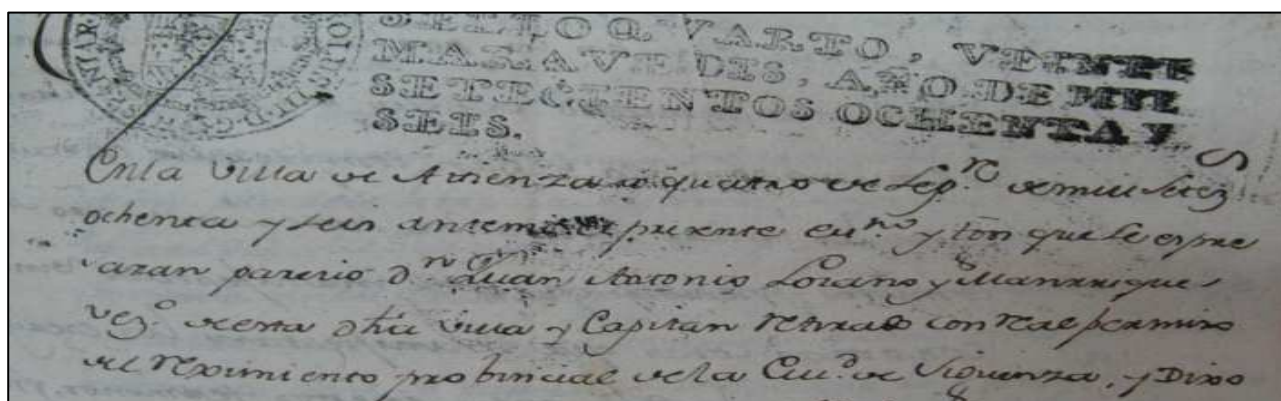 SELLO QVARTO, VEINTE
MARAVEDIS, AÑO DE MIL
SETECIENTOS OCHENTA Y
SEIS.
En la Villa de Atienza a quatro de Sep.re de mill setez.s
ochenta y seis ante mi el presente esn.no y tgos que se espre
saran parecio D.n Juan Antonio Lozano y Manrrique
vez.o de esta dha villa y Capitan Retirado con Real permiso
del Reximiento probincial de la Ciu.d de Siguenza, y Dixo